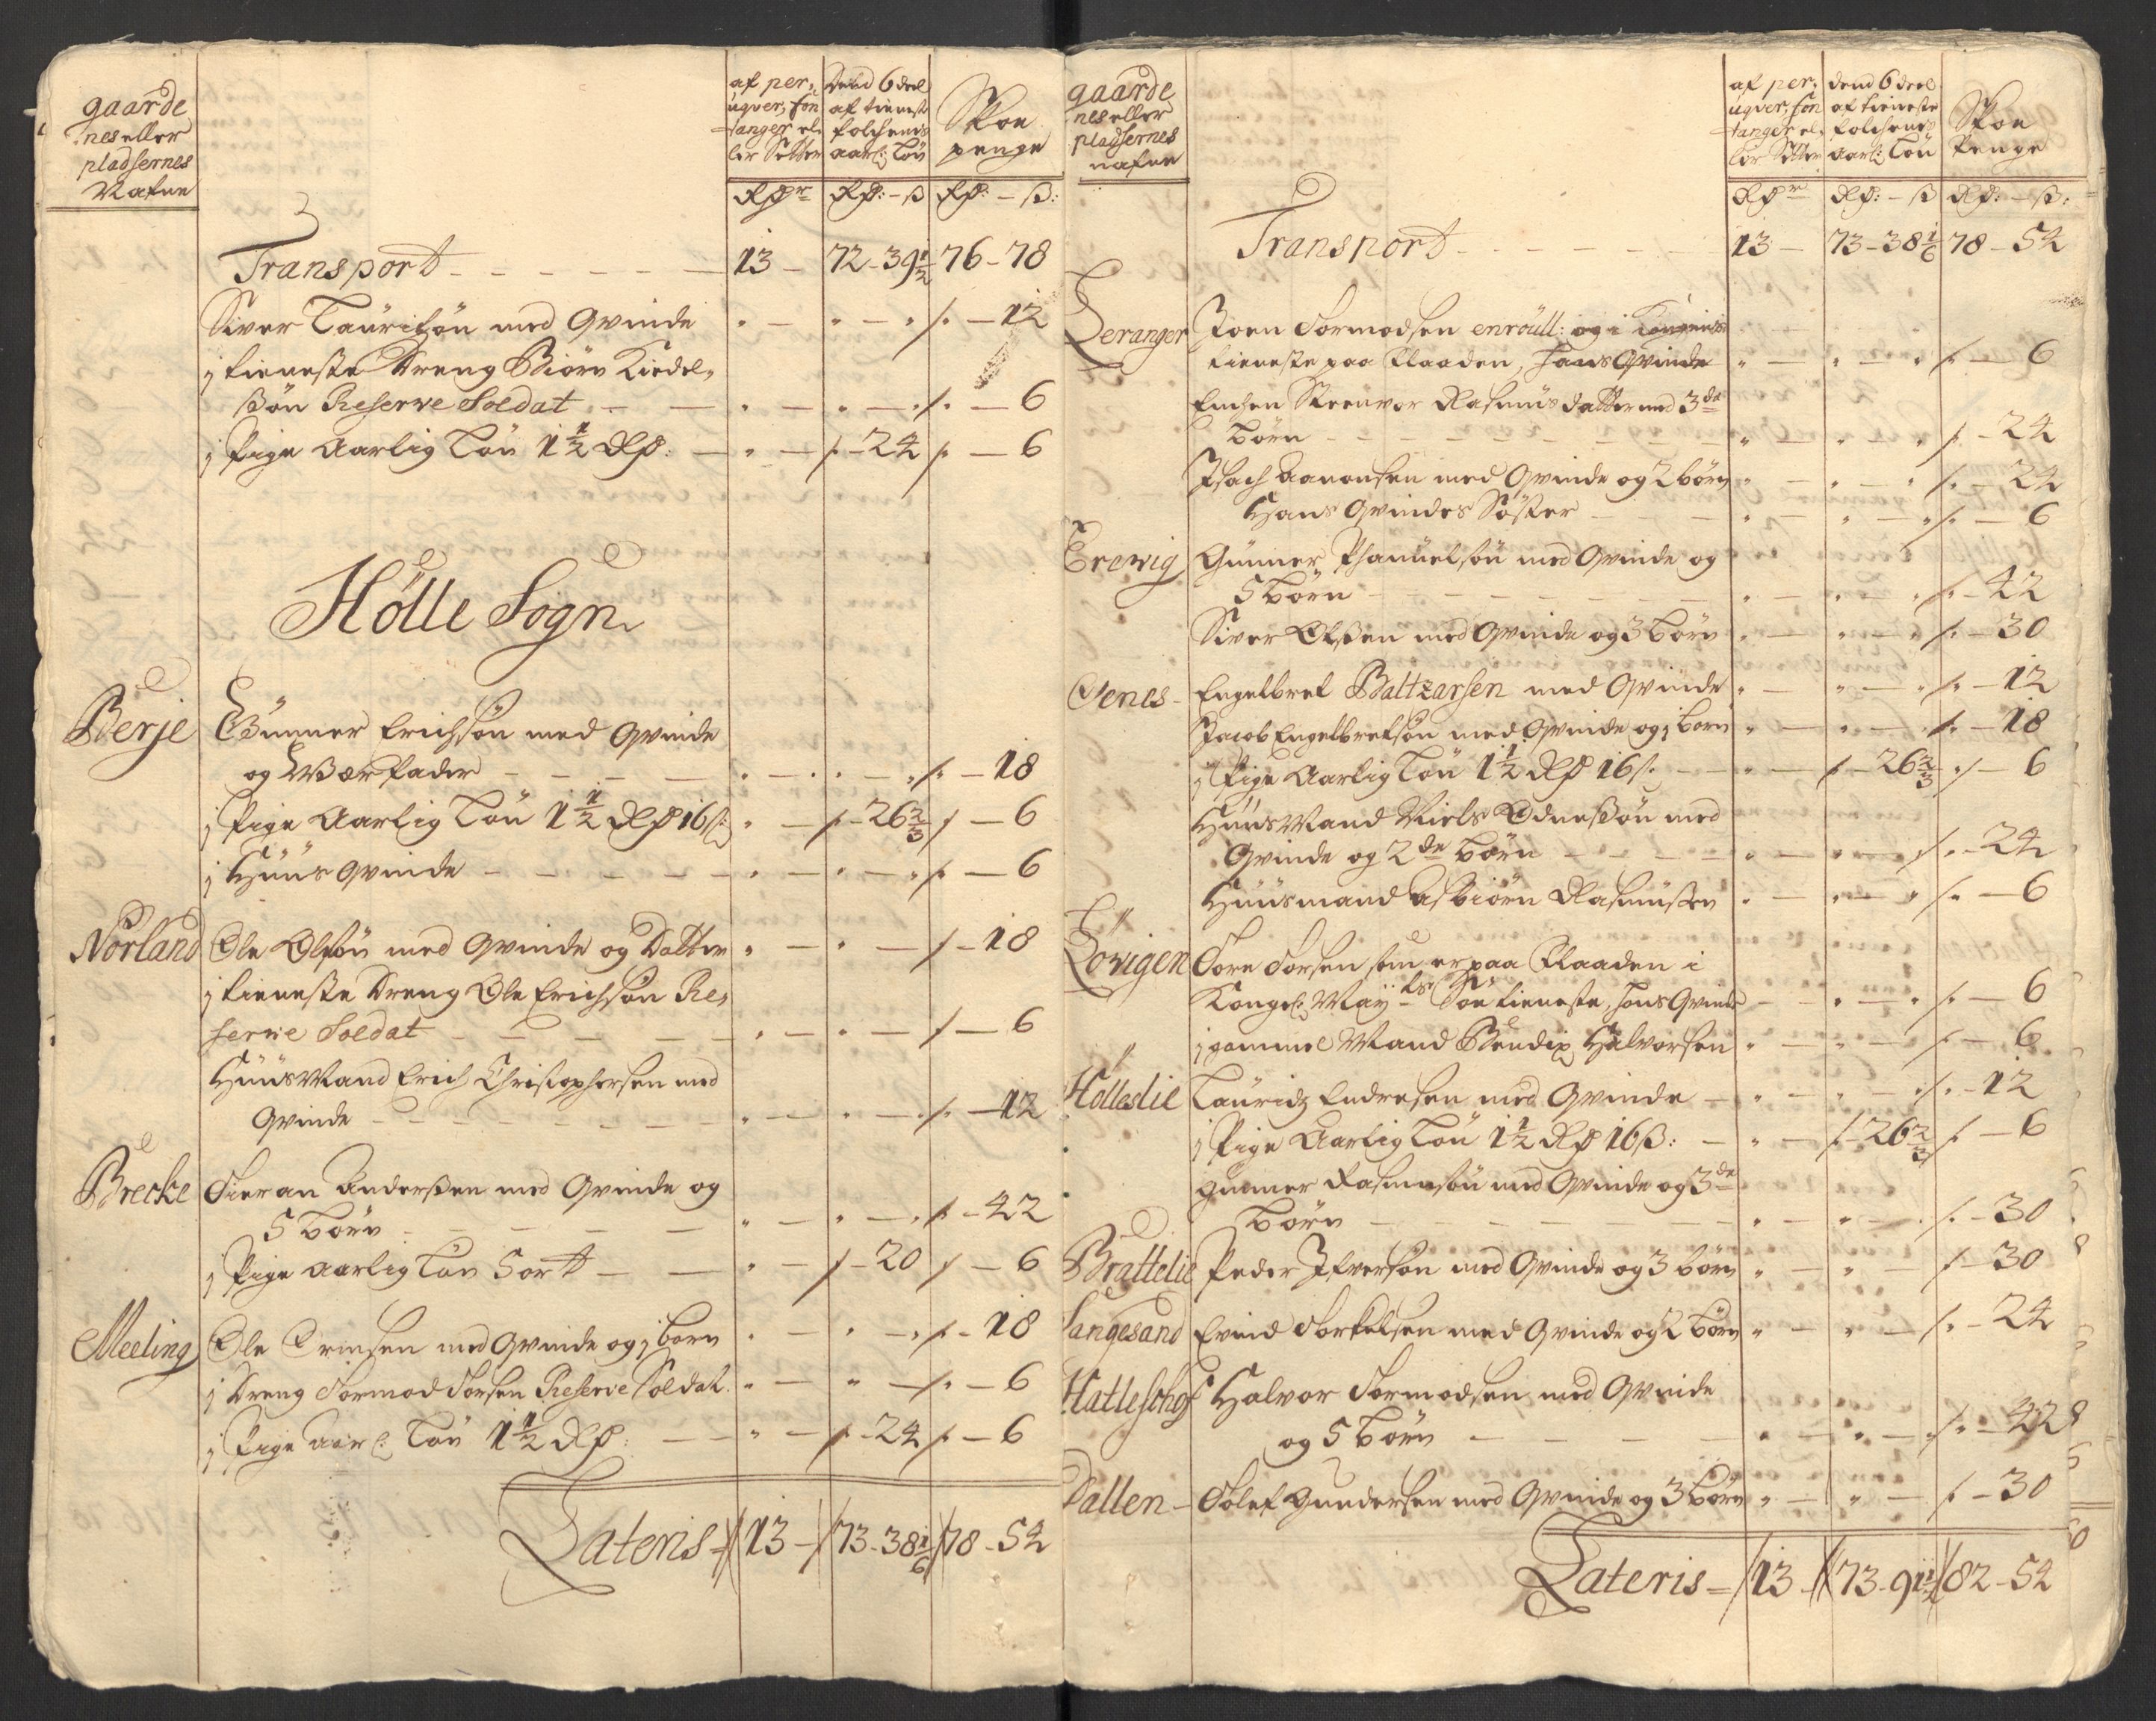 gaarde
nes eller
pladsernes
Nafne
af per,
uqver, fon
tanger el,
ler Setter
Dend 6 deel
af tieneste
folchenes
aarl: Løn
Skoe
penge
Rdr Rd: - ß Rd: - ß:
Transport - - - - - - 13 - 72 - 39 1/2 76 - 78
Siver Lauritzøn med Qvinde " - " - " /: - 12
j tieneste Dreng Biørn Kiedel,
ßøn Reserve Soldat - - " - " - /: - 6
j Pige Aarlig Løn 1 1/2 Rd: - " - /: - 24 /: - 6
Hölle Sogn
Berje Gunner Erichsøn med Qvinde
og Værfader - - - - " - " - /: - 18
j Pige Aarlig Løn 1 1/2 Rd 16 ß: " - /: - 26 2/3 / - 6
j Huus Qvinde - - - - - " - " - /: - 6
Nörland Ole Olsøn med Qvinde og Datter " - " - / - 18
j tieneste Dreng Ole Erichsøn Re,
serve Soldat - - - - " - " - / - 6
Huus Mand Erich Christophersen med
Qvinde - - - - - - - " - " - /: - 12
Brecke Sieran Andersen med Qvinde og
5 børn - - - - " - " - /: - 42
j Pige aarlig Løn 5 ort - - " - / - 20 / - 6
Meeling Ole Orinsen med Qvinde og j barn " - " - /: - 18
j Dreng Tormod Torsen Reserve Soldat " - " - /: - 6
j Pige aarl: Løn 1 1/2 Rd: - - " - /: - 24 /: - 6
Lateris 13 - 73 - 38 1/6 78 - 54
gaarde
nes eller
pladsernes
nafne
af per,
uqver, fon
tanger el,
ler Setter
dend 6 deel
af tieneste
folchenes
aarl: Løn
Skoe
Penge
Rdr Rd: - ß Rd: - ß:
Transport - - - - - 13 - 73 - 38 1/6 78 - 54
Leranger Joen Tormodsen enroull: og i Kongens
tieneste paa Flaaden, hans Qvinde " - " - " /: - 6
Enchen Steenvor Rasmusdatter med 3de
børn - - - - - - - " - " - " /: - 24
Isach Aanonsen med Qvinde og 2 børn " - " - " /: - 24
Hans Qvindes Søster - - - " - " - " /: - 6
Erewig Gunner Phanuelsøn med Qvinde og
5 børn - - - - - - - " - " - " /: - 42
Siver Olsen med Qvinde og 3 børn " - " - " /: - 30
Oenes - Engelbret Baltzarsen med Qvinde " - " - " /: - 12
Jacob Engelbretsøn med Qvinde og j barn " - " - /: - 18
j Pige Aarlig Løn 1 1/2 Rd 16 ß: - - " - /: - 26 2/3 / - 6
Huus Mand Niels Odnesøn med
Qvinde og 2de børn - - - - " - " - /: - 24
Huusmand Asbiørn Rasmussen " - " - " /: - 6
Lövigen Tore Torsen som er paa Flaaden i
Kongel: May:ts Søe tieneste, hans Qvinde - " - " /: - 6
j gammel Mand Bendix Halvorsen " - " - /: - 6
Hölleslie Lauridz Endresen med Qvinde - " - " - " /: - 12
j Pige Aarlig Løn 1 1/2 Rd 16 ß: - " - /: - 26 2/3 /: - 6
Gunner Rasmusøn med Qvinde og 3de
børn - - - - - - - " - " - /: - 30
Brattelie Peder Ifversøn med Qvinde og 3 børn " - " - / - 30
Sangesand Evind Torkelsen med Qvinde og 2 børn " - " - /: - 24
Hatleschog Halvor Tormodsen med Qvinde
og 5 børn - - - - " - " - /: - 42
Dallen - Tolef Gundersen med Qvinde og 3 børn " - " - /: - 30
Lateris 13 - 73 - 91 1/2 82 - 54